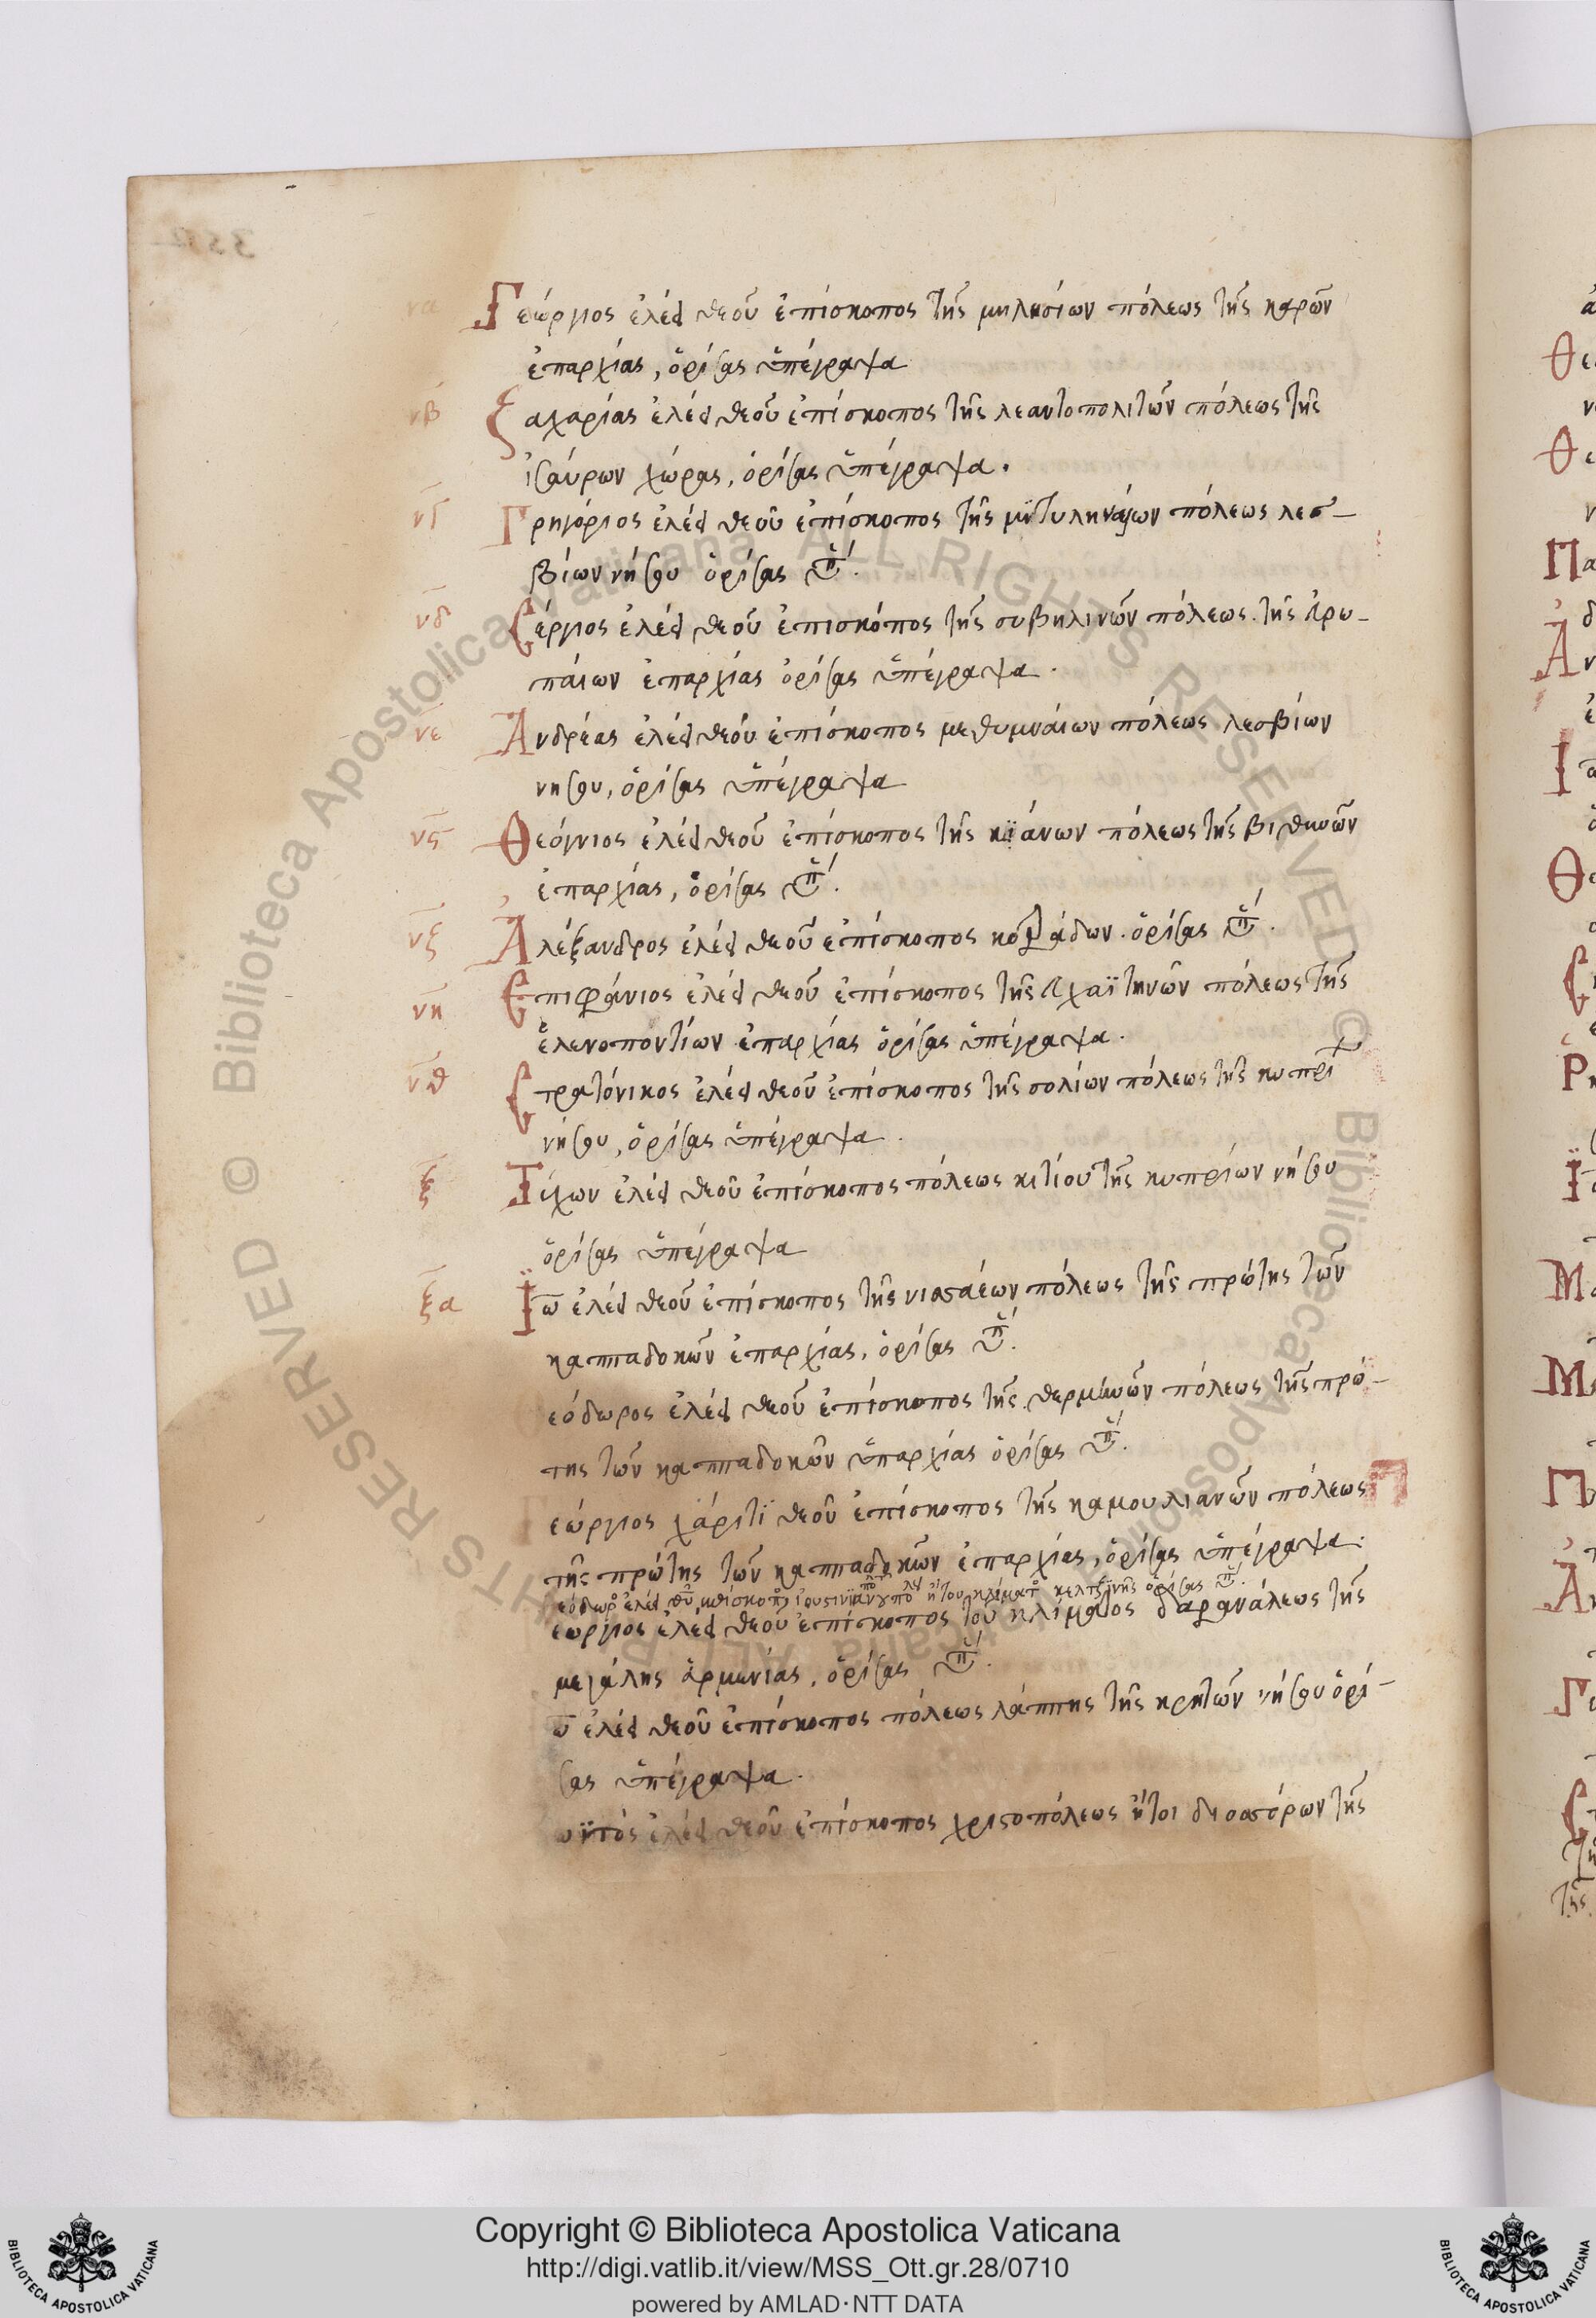 να Γεώργιος ἐλέω θεοῦ ἐπίσκοπος τῆς μιλησίων πόλεως τῆς καρῶν
ἐπαρχίας, ὁρίσας ὑπέγραψα
νβ Ζαχαρίας ἐλέω θεοῦ ἐπίσκοπος τῆς λεαντοπολιτῶν πόλεως τῆς
ἰσαύρων χώρας, ὁρίσας ὑπέγραψα.
νγ Γρηγόριος ἐλέω θεοῦ ἐπίσκοπος τῆς μϊτυληναίων πόλεως λεσ-
βίων νήσου ὁρίσας ὑπ.
νδ Σέργιος ἐλέω θεοῦ ἐπισκόπος τῆς συβηλινῶν πόλεως. τῆς
ἐπαρχίας ὁρίσας ὑπέγραψα.
νε Ἀνδρέας ἐλέω θεοῦ ἐπίσκοπος μεθυμναίων πόλεως λεσβίων
νησου, ὁρίσας ὑπέγραψα
νϛ Θεόγνιος ἐλέω θεοῦ ἐπίσκοπος τῆς κϊάνων πόλεως τῆς βιθυνῶν
ἐπαρχίας, ὁρίσας ὑπ.
νζ Ἀλέξανδρος ἐλέω θεοῦ ἐπίσκοπος ὁρίσας ὑπ.
νη Επιφάνιος ἐλέω θεοῦ ἐπίσκοπος τῆς πόλεως τῆς
ἑλενοποντίων ἐπαρχίας ὁρίσας ὑπέγραψα.
νθ Στρατόνικος ἐλέω θεοῦ ἐπίσκοπος τῆς σολίων πόλεως τῆς κυπρί
νήσου, ὁρίσας ὑπέγραψα.
ξ Τύχων ἐλέω θεοῦ ἐπίσκοπος πόλεως κιτίου τῆς κυπρίων νήσου
ὁρίσας ὑπέγραψα
ξα Ϊω ἐλέω θεοῦ ἐπίσκοπος τῆς πόλεως τῆς πρώτης τῶν
καππαδοκῶν ἐπαρχίας, ὁρίσας ὑπ.
εόδωρος ἐλέω θεοῦ ἐπίσκοπος τῆς πόλεως τῆς πρώ-
της τῶν καππαδοκῶν ὑπαρχίας ὁρίσας ὑπ.
εώργιος χάριτϊ θεοῦ ἐπίσκοπος τῆς καμουλιανῶν πόλεως
τῆς πρώτης τῶν καππαδοκῶν ἐπαρχίας, ὁρίσας ὑπέγραψα.
ἐλέω θῦ ὁρίσας ὑπ.
εώργιος ἐλέω θεοῦ ἐπίσκοπος τοῦ κλίματος δαραναλεως τῆς
μεγάλης ἀρμενίας, ὁρίσας ὑπ.
ω ἐλέω θεοῦ ἐπίσκοπος πόλεως λάππης τῆς κρητῶν νήσου ὁρί-
σας ὑπέγραψα.
ἐλέω θεοῦ ἐπίσκοπος χριστοπόλεως ἤτοι τῆς
Copyright © Biblioteca Apostolica Vaticana
http://digi.vatlib.it/view/MSS_Ott.gr.28/0710
powered by AMLAD·NTT DATA